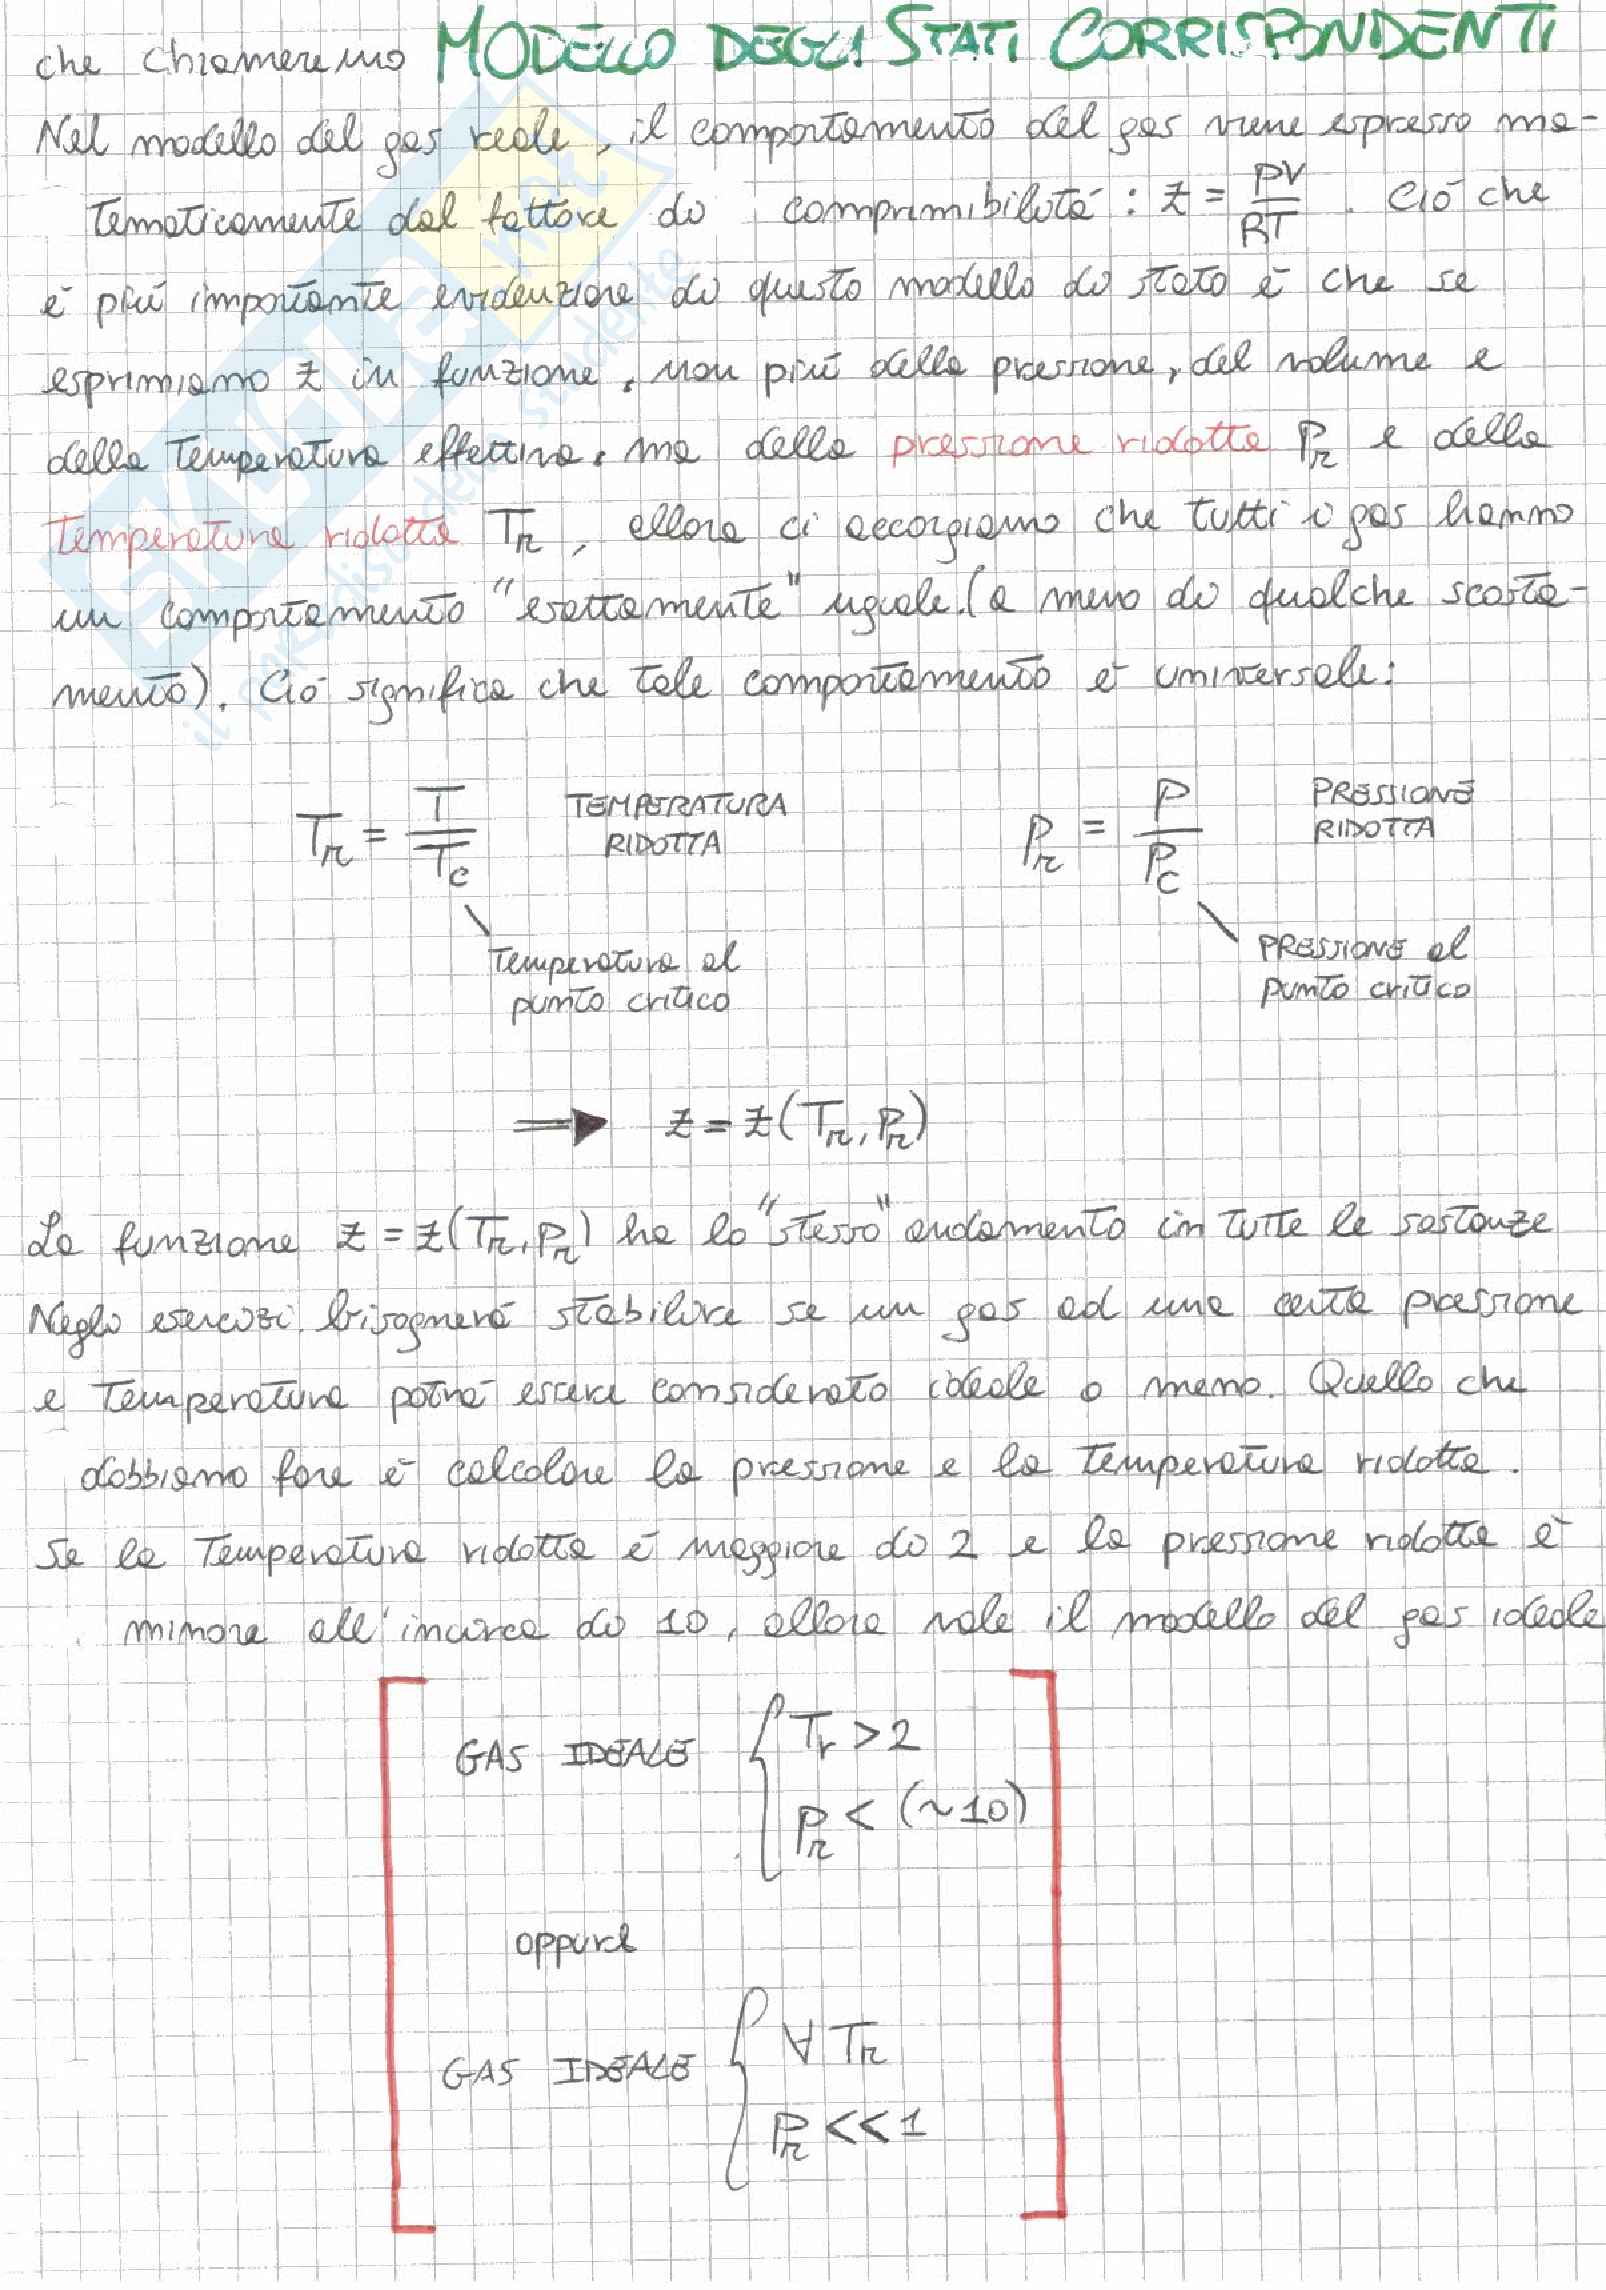 che chiameremo MODELLO DEGLI STATI CORRISPONDENTI
Nel modello del gas reale, il comportamento del gas viene espresso ma-
tematicamente dal fattore di comprimibilità : z = PV/RT . Ciò che
è più importante evidenziare di questo modello di stato è che se
esprimiamo z in funzione, non più della pressione, del volume e
della temperatura effettiva, ma della pressione ridotta Pr e della
temperatura ridotta Tr , allora ci accorgiamo che tutti i gas hanno
un comportamento "esattamente" uguale (a meno di qualche scosta-
mento). Ciò significa che tale comportamento è universale:
Tr = T/Tc TEMPERATURA RIDOTTA Pr = P/Pc PRESSIONE RIDOTTA
Temperatura al PRESSIONE al
punto critico punto critico
⇒ z = z(Tr, Pr)
La funzione z = z(Tr, Pr) ha lo "stesso" andamento in tutte le sostanze
Negli esercizi bisognerà stabilire se un gas ad una certa pressione
e temperatura potrà essere considerato ideale o meno. Quello che
dobbiamo fare è calcolare la pressione e la temperatura ridotta.
Se la temperatura ridotta è maggiore di 2 e la pressione ridotta è
minore all'incirca di 10, allora vale il modello del gas ideale
GAS IDEALE { Tr > 2
Pr < (~10)
oppure
GAS IDEALE { ∀ Tr
Pr << 1
SKUOLA.net
il paradiso dello studente